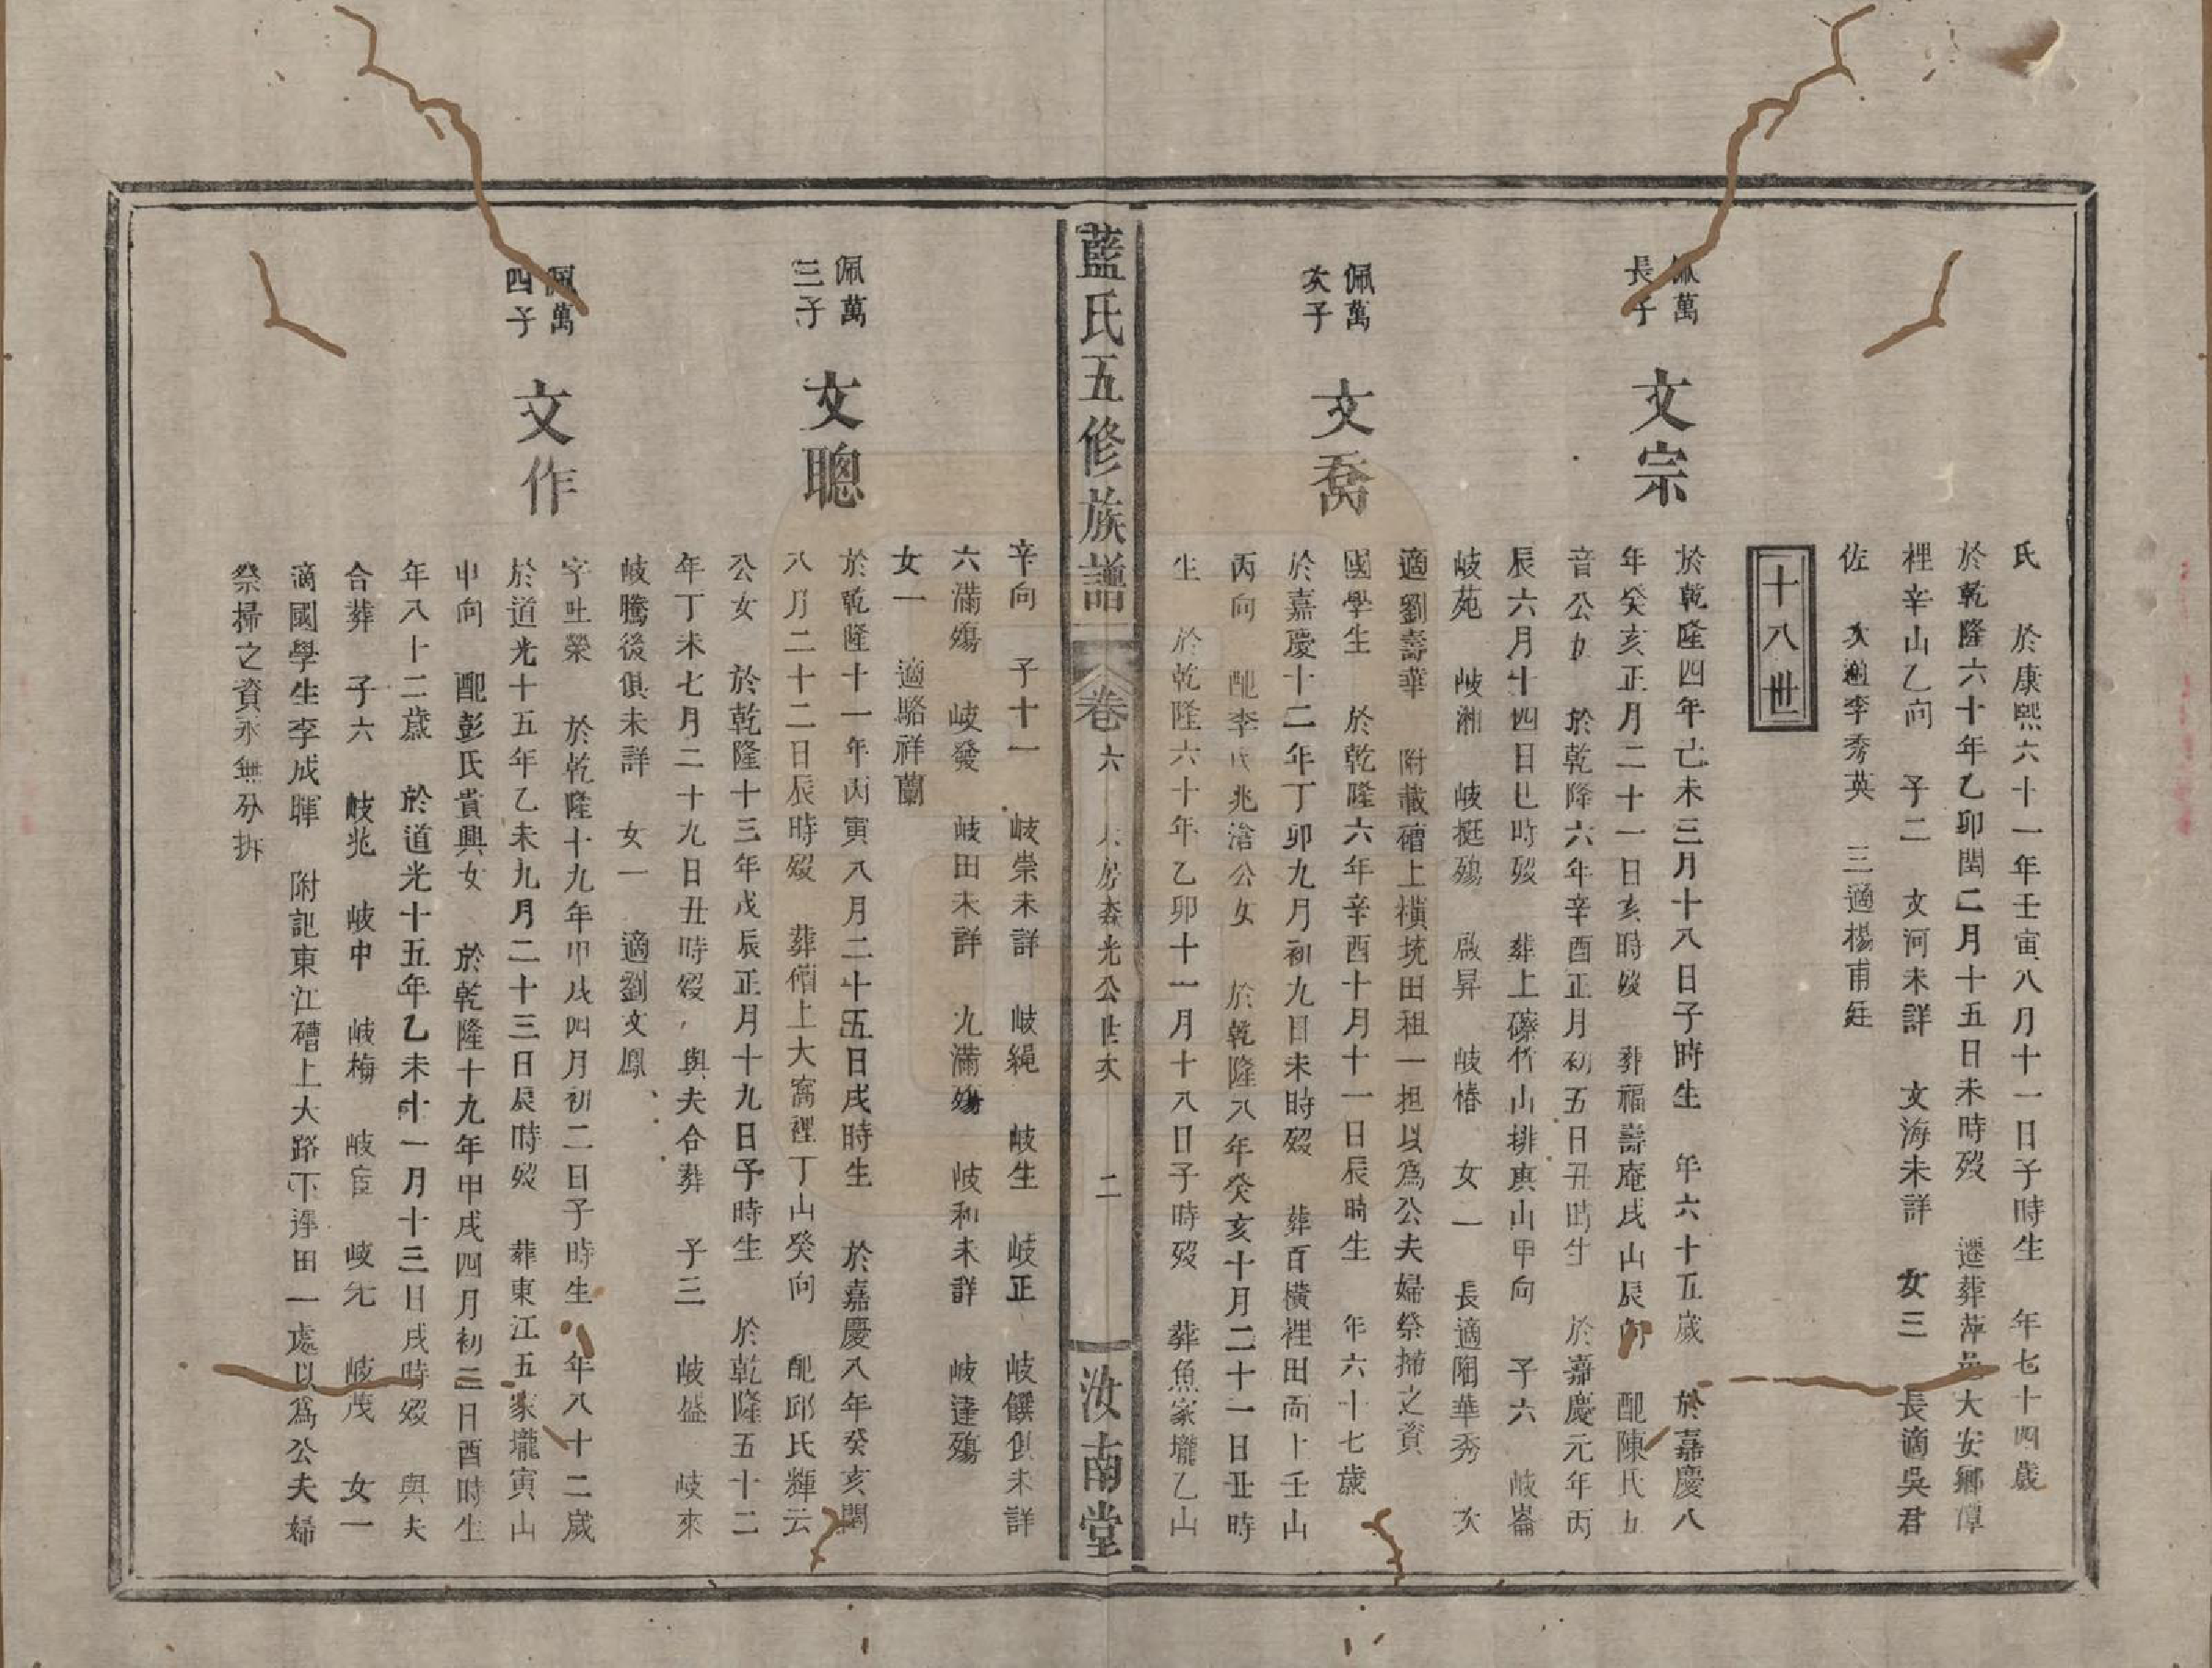 氏 於康熙六十一年壬寅八月十一日子時生 年七十四歲
於乾隆六十年乙卯閏二月十五日未時歿 遷葬萍邑大安鄉潭
裡辛山乙向 子二 文河未詳 文海未詳 女三 長適吳君
佐 次適李秀英 三適楊甫廷
十八世
佩萬長子 文宗
於乾隆四年己未三月十八日子時生 年六十五歲 於嘉慶八
年癸亥正月二十一日亥時歿 葬福壽庵戌山辰向 配陳氏九
音公女 於乾隆六年辛酉正月初五日丑時生 於嘉慶元年丙
辰六月十四日巳時歿 葬上磜竹山排庚山甲向 子六 岐崙
岐苑 岐湘 岐挺殤 啟昇 岐椿 女二 長適陶華秀 次
適劉壽華 附載磳上横坑田租一担以為公夫婦祭掃之資
佩萬次子 文喬
國學生 於乾隆六年辛酉十月十一日辰時生 年六十七歲
於嘉慶十二年丁卯九月初九日未時歿 葬百橫裡田面上壬山
丙向 配李氏兆滄公女 於乾隆八年癸亥十月二十一日丑時
生 於乾隆六十年乙卯十一月十八日子時歿 葬魚家壠乙山
藍氏五修族譜 卷六 房森光公世次 二 汝南堂
辛向 子十一 岐崇未詳 岐繩 岐生 岐正 岐饌俱未詳
六滿殤 岐發 岐田未詳 九滿殤 岐和未詳 岐達殤
女一 適駱祥蘭
佩萬三子 文聰
於乾隆十一年丙寅八月二十五日戌時生 於嘉慶八年癸亥閏
八月二十二日辰時歿 葬磳上大窩裡丁山癸向 配邱氏輝云
公女 於乾隆十三年戊辰正月十九日子時生 於乾隆五十二
年丁未七月二十九日丑時歿 與夫合葬 子三 岐盛 岐來
岐騰後俱未詳 女一 適劉文鳳
佩萬四子 文作
字吐榮 於乾隆十九年甲戌四月初二日子時生 年八十二歲
於道光十五年乙未九月二十三日辰時歿 葬東江五家壠寅山
申向 配彭氏貴興女 於乾隆十九年甲戌四月初三日酉時生
年八十二歲 於道光十五年乙未十一月十三日戌時歿 與夫
合葬 子六 岐兆 岐中 岐梅 岐宦 岐先 岐茂 女一
適國學生李成暉 附記東江磳上大路下墿田一處以為公夫婦
祭掃之資永無分拆